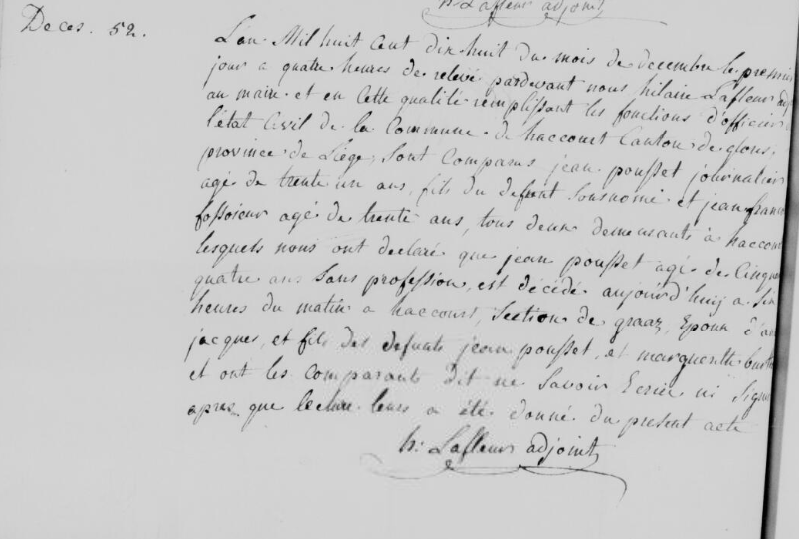 h: Lafleur adjoint
Deces. 52.
L'an Mil huit Cent dix huit du mois de decembre le premier
jour a quatre heures de relevé pardevant nous hilaire Lafleur adj
au maire et en Cette qualité remplissant les fonctions d'officier
l'état Civil de la Commune de haccourt Canton de glons,
province de Liége, Sont Comparus jean pousset journalier
agé de trente un ans, fils du defunt Sousnomé et jean fran
fossoieur agé de trente ans, tous deux demeurants à haccou
lesquels nous ont declaré que jean pousset agé de Cinqua
quatre ans Sans profession, est décédé aujourd'huy a Six
heures du matin a haccourt, Section de , Epoux
jacques, et fils des defunts jean pousset, et marguerithe
et ont les Comparants dit ne Savoir Ecrire ni Signe
apres que lecture leurs a été donné du present acte
h: Lafleur adjoint